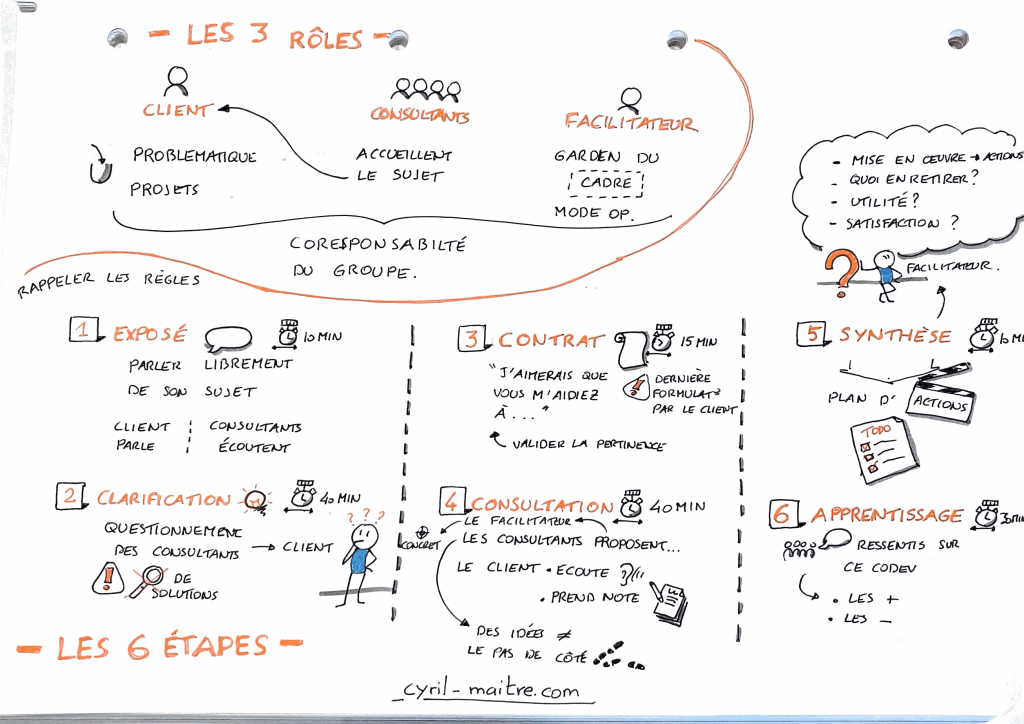 - LES 3 RÔLES -
CLIENT
CONSULTANTS
FACILITATEUR
PROBLÉMATIQUE
PROJETS
ACCUEILLENT
LE SUJET
GARDEN DU
CADRE
MODE OP.
CORESPONSABILTÉ
DU GROUPE.
RAPPELER LES RÈGLES
- MISE EN ŒUVRE → ACTIONS
- QUOI EN RETIRER?
- UTILITÉ?
- SATISFACTION ?
?
FACILITATEUR.
1 EXPOSÉ 10 MIN
PARLER LIBREMENT
DE SON SUJET
CLIENT CONSULTANTS
PARLE ÉCOUTENT
2 CLARIFICATION 40 MIN
QUESTIONNEMENT
DES CONSULTANTS → CLIENT
? ? ?
! DE
SOLUTIONS
3 CONTRAT 15 MIN
"J'AIMERAIS QUE
VOUS M'AIDIEZ
À..."
! DERNIÈRE
FORMULAT°
PAR LE CLIENT
VALIDER LA PERTINENCE
4 CONSULTATION 40 MIN
LE FACILITATEUR
+
CONCRET
LES CONSULTANTS PROPOSENT...
LE CLIENT • ECOUTE
• PREND NOTE
DES IDÉES ≠
LE PAS DE CÔTÉ
5 SYNTHÈSE
PLAN D'
ACTIONS
TODO
6 APPRENTISSAGE
RESSENTIS SUR
CE CODEV
• LES +
• LES -
- LES 6 ÉTAPES -
cyril-maitre.com